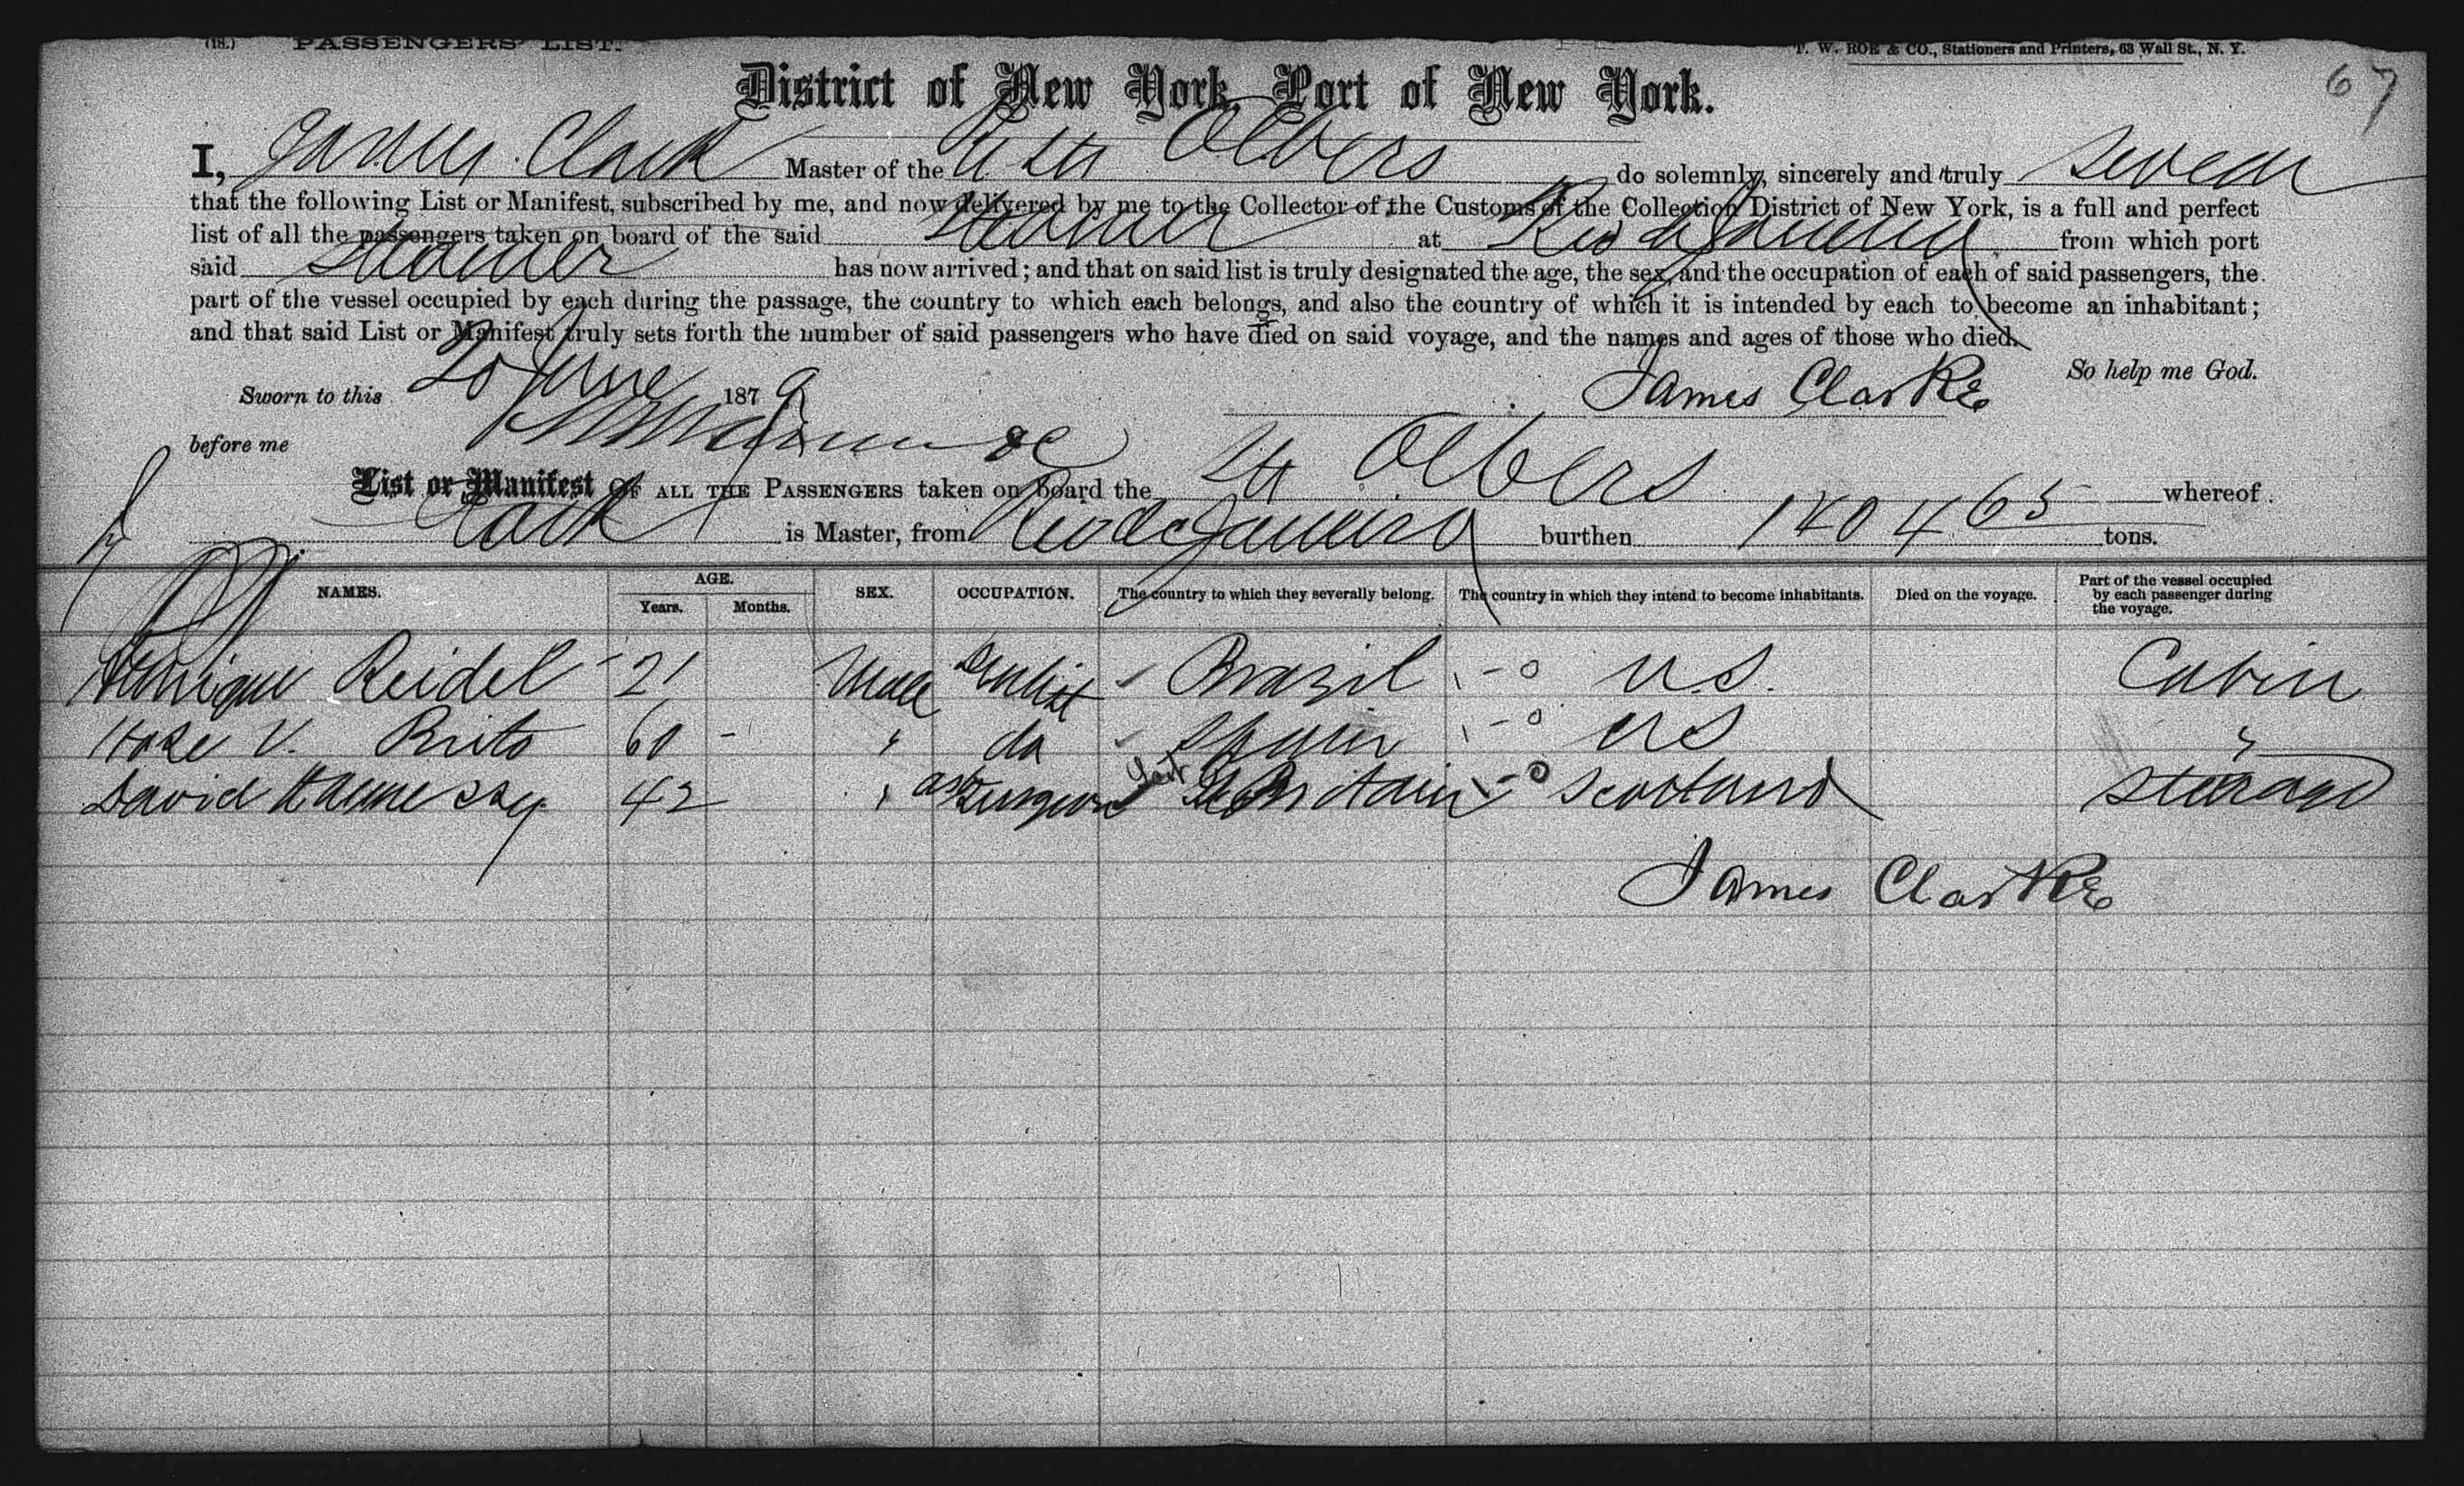 (18.) PASSENGERS' LIST. T. W. ROE & CO., Stationers and Printers, 63 Wall St., N. Y.
67
District of New York, Port of New York.
I, James Clark Master of the Str Olbers do solemnly, sincerely and truly swear
that the following List or Manifest, subscribed by me, and now delivered by me to the Collector of the Customs of the Collection District of New York, is a full and perfect
list of all the passengers taken on board of the said steamer at Rio de Janeiro from which port
said steamer has now arrived; and that on said list is truly designated the age, the sex, and the occupation of each of said passengers, the
part of the vessel occupied by each during the passage, the country to which each belongs, and also the country of which it is intended by each to become an inhabitant;
and that said List or Manifest truly sets forth the number of said passengers who have died on said voyage, and the names and ages of those who died.
So help me God.
Sworn to this 20 June 1879 James Clarke
before me
List or Manifest OF ALL THE PASSENGERS taken on board the Str Olbers whereof
Clark is Master, from Rio de Janeiro burthen 1404 65 tons.
NAMES. AGE. Years. Months. SEX. OCCUPATION. The country to which they severally belong. The country in which they intend to become inhabitants. Died on the voyage. Part of the vessel occupied by each passenger during the voyage.
Henrique Reidel 21 Male Brazil U.S. Cabin
Hose V. Brito 60 - " do Spain US "
David 42 " Surgeon Gt Britain Scotland Steerage
James Clarke